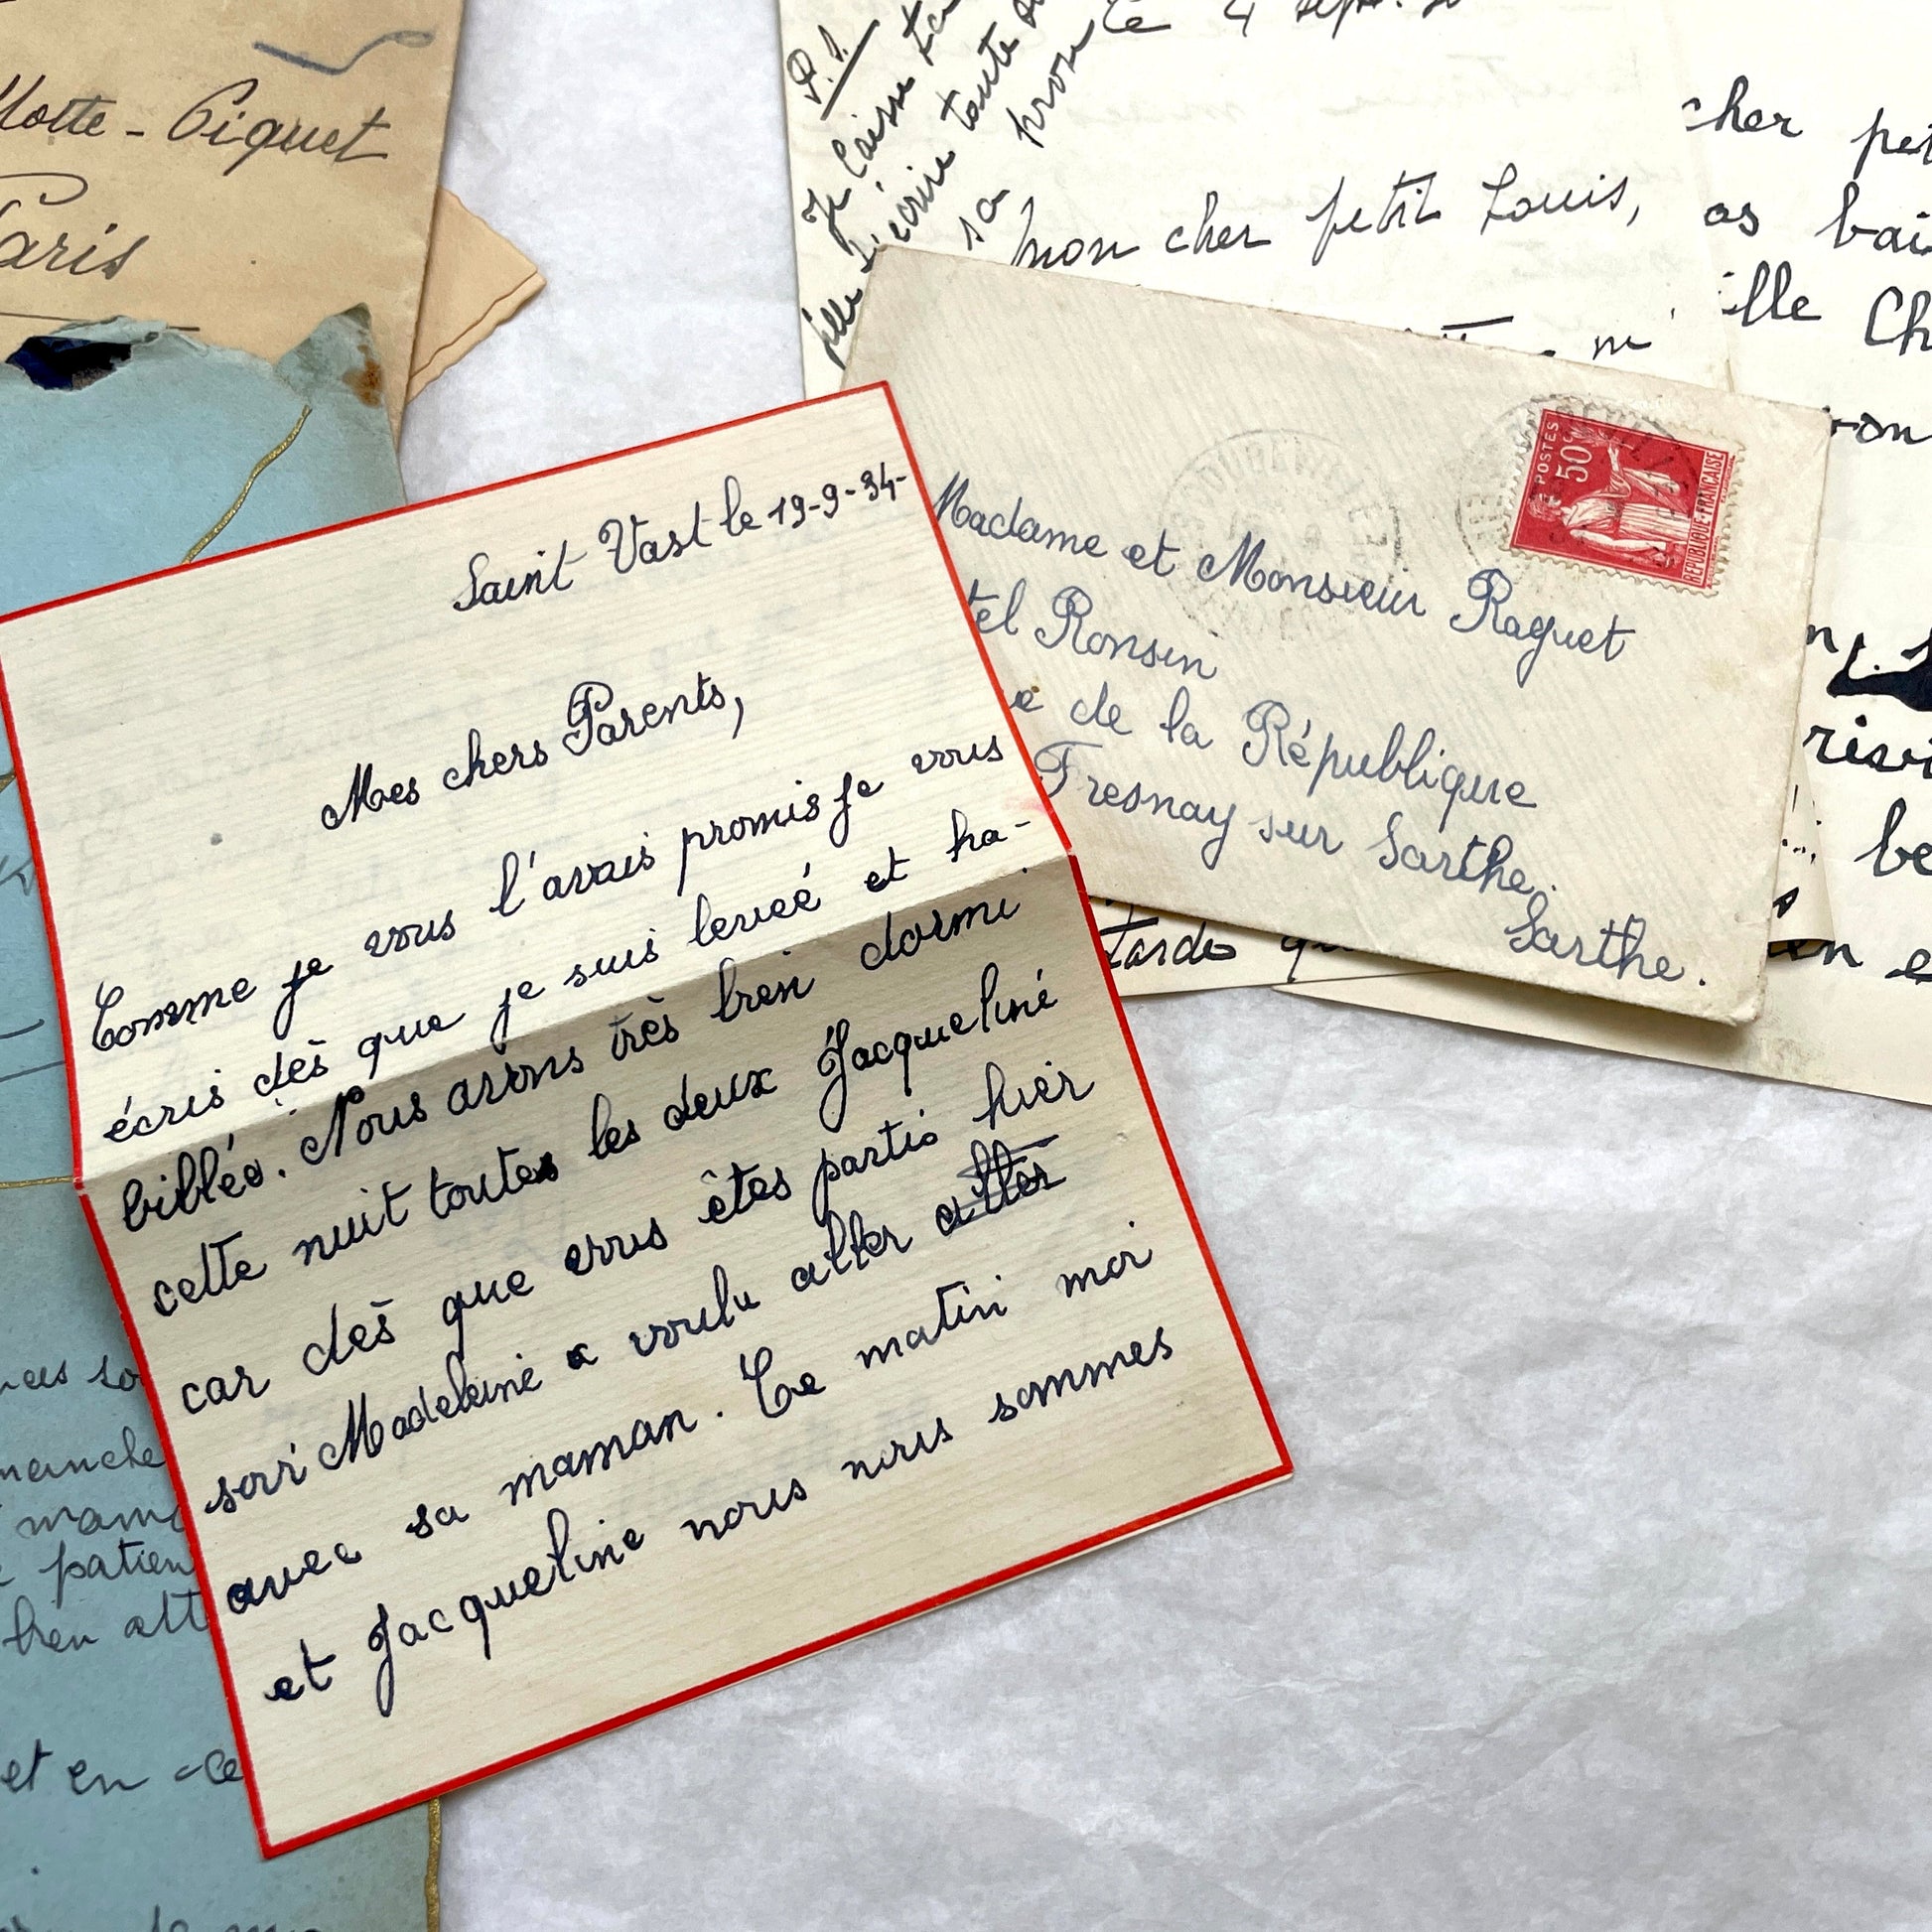 Motte-Piquet
Paris
P.S.
Je laisse
fille t'écrire toute
sa prose
le 4 sept.
mon cher petit Louis,
cher
os
Ch
Saint Vast le 19-9-34-
Mes chers Parents,
Comme je vous l'avais promis je vous
écris dès que je suis levée et ha-
billée. Nous avons très bien dormi
cette nuit toutes les deux Jacqueline
car dès que vous êtes partis hier
soir Madeleine a voulu aller aller
avec sa maman. Ce matin moi
et Jacqueline nous nous sommes
POSTES
50c
REPUBLIQUE FRANÇAISE
Madame et Monsieur Raguet
tel Ronsin
e de la République
Fresnay sur Sarthe.
Sarthe.
tarde
en
manche
patien
bien
et en ce